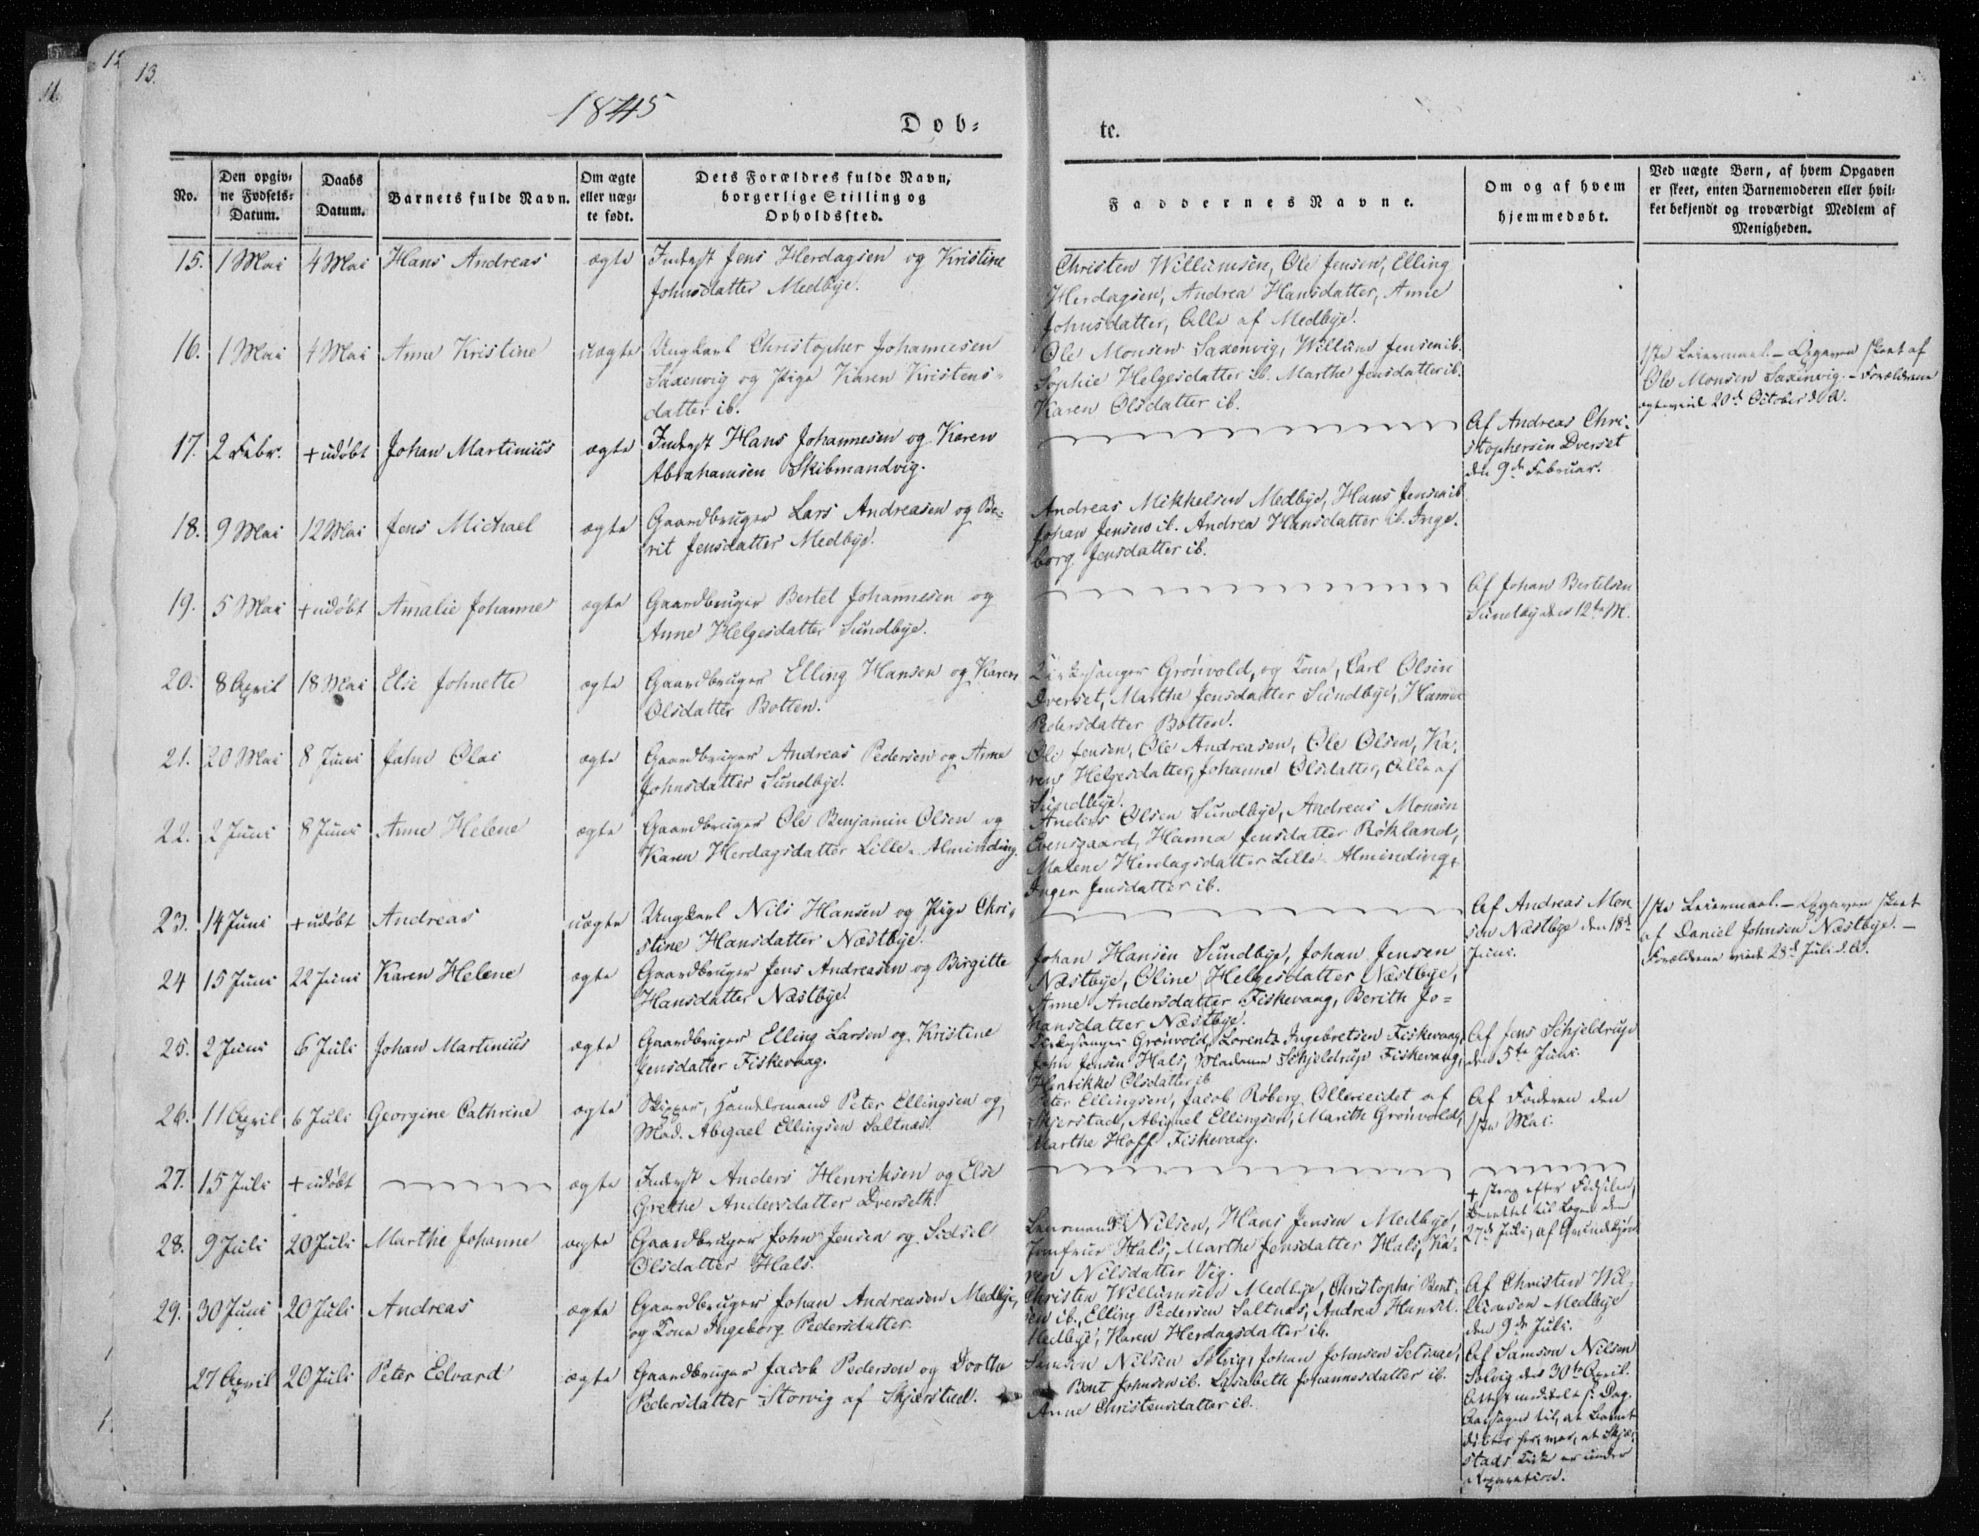 11.
12
13.
1845
Døb-
te.
No.
Den opgiv-
ne Fødsels-
Datum.
Daabs
Datum.
Barnets fulde Navn.
Om ægte
eller uæg-
te født.
Dets Forældres fulde Navn,
borgerlige Stilling og
Opholdssted.
Faddernes Navne.
Om og af hvem
hjemmedøbt.
Ved uægte Børn, af hvem Opgaven
er skeet, enten Barnemoderen eller hvil-
ket bekjendt og troværdigt Medlem af
Menigheden.
15. 1 Mai 4 Mai Hans Andreas ægte Inderst Jens Herdagsen og Kristine
Johnsdatter Medbye.
Christen Willumsen, Ole Jensen, Elling
Herdagsen, Andrea Hansdatter, Anne
Johnsdatter, Alle af Medbye.
16. 1 Mai 4 Mai Anne Kristine uægte Ungkarl Christopher Johannesen
Saxenvig og Pige Karen Kristens-
datter ib.
Ole Monsen Saxenvig, Willum Jensen ib.
Sophie Helgesdatter ib. Marthe Jensdatter ib.
Karen Olsdatter ib.
1ste Leiermaal. - Opgaven skeet af
Ole Monsen Saxenvig. - Forældrene
ægteviet 20de October d. A.
17. 2 Febr. + udøbt Johan Martinius ægte Inderst Hans Johannesen og Karen
Abrahamsen Skibmandvig.
Af Andreas Chri-
stophersen Dverset
den 9de Februar.
18. 9 Mai 12 Mai Jens Michael ægte Gaardbruger Lars Andreasen og Be-
rit Jensdatter Medbye.
Andreas Mikkelsen Medbye, Hans Jensen ib
Johan Jensen ib. Andrea Hansdatter ib. Inge-
borg Jensdatter ib.
19. 5 Mai + udøbt Amalie Johanne ægte Gaardbruger Bertel Johannesen og
Anne Helgesdatter Sundbye.
Af Johan Bertelsen
Sundbye den 12te M.
20. 8 April 18 Mai Else Johnette ægte Gaardbruger Elling Hansen og Karen
Olsdatter Botten.
Kirkesanger Grønvold, og Kone, Carl Olsen
Dverset, Marthe Jensdatter Sundbye, Hanna
Pedersdatter Botten.
21. 20 Mai 8 Juni John Olai ægte Gaardbruger Andreas Pedersen og Anne
Johnsdatter Sundbye.
Ole Jensen, Ole Andreasen, Ole Olsen, Ka-
ren Helgesdatter, Johanne Olsdatter, Alle af
Sundbye.
22. 2 Juni 8 Juni Anne Helene ægte Gaardbruger Ole Benjamin Olsen og
Karen Herdagsdatter Lille-Alminding.
Anders Olsen Sundbye, Andreas Monsen
Evensgaard, Hanna Jensdatter Røkland,
Malene Herdagsdatter Lille-Alminding,
Inger Jensdatter ib.
23. 14 Juni + udøbt Andreas uægte Ungkarl Nils Hansen og Pige Chri-
stine Hansdatter Næstbye.
Af Andreas Mon
sen Næstbye den 18de
Juni.
1ste Leiermaal. - Opgaven skeet
af Daniel Johnsen Næstbye. -
Forældrene viet 28de Juli d. A.
24 15 Juni 22 Juni Karen Helene ægte Gaardbruger Jens Andreasen og Birgitte
Hansdatter Næstbye.
Johan Hansen Sundbye, Johan Jensen
Næstbye, Oline Helgesdatter Næstbye,
Anne Andersdatter Fiskevaag, Berith Jo-
hansdatter Næstbye.
25. 2 Juni 6 Juli Johan Martinius ægte Gaardbruger Elling Larsen og Kristine
Jensdatter Fiskevaag.
Kirkesanger Grønvold, Lorents Ingebretsen Fiskevaag,
John Jensen Hals, Madame Schjeldrup Fiskevaag,
Henrikke Olsdatter ib
Af Jens Schjeldrup
den 5te Juni.
26. 11 April 6 Juli Georgine Cathrine ægte Skipper, Handelsmand Peter Ellingsen og
Mad. Abigael Ellingsen Saltnæs.
Peter Ellingsen, Jacob Røberg af
Skjerstad, Abigael Ellingsen, Marith Grønvold,
Marthe Hoff Fiskevaag.
Af Faderen den
1ste Mai.
27. 15 Juli + udøbt ægte Inderst Anders Henriksen og Else
Grethe Andersdatter Dverseth.
+ strax efter Fødselen,
Berettet til Bogen den
27de Juli, af
28. 9 Juli 20 Juli Marthe Johanne ægte Gaardbruger John Jensen og Sidsel
Olsdatter Hals.
Nilsen, Hans Jensen Medbye,
Jomfrue Hals, Marthe Jensdatter Hals, Ka-
ren Nilsdatter Vig.
29. 30 Juni 20 Juli Andreas ægte Gaardbruger Johan Andreasen Medbye,
og Kone Ingeborg Pedersdatter.
Christen Willumsen Medbye, Christopher Bent-
sen ib., Elling Pedersen Saltnæs, Andrea Hansd.
Medbye, Karen Herdagsdatter ib.
Af Christen Wil-
lumsen Medbye
den 9de Juli.
27 April 20 Juli Peter Edvard ægte Gaardbruger Jacob Pedersen og Dorthe
Pedersdatter Storvig af Skjærstad.
Samson Nilsen Solvig, Johan Johnsen Setsaae,
Bent Johnsen ib. Lisabeth Johannesdatter ib.
Anne Christensdatter ib.
Af Samson Nilsen
Solvig den 30te April.
Attest meddelt s. Dag.
Aarsagen til, at Barnet
døbtes her, var, at Skjer-
stads Kirke er under
Reparation.